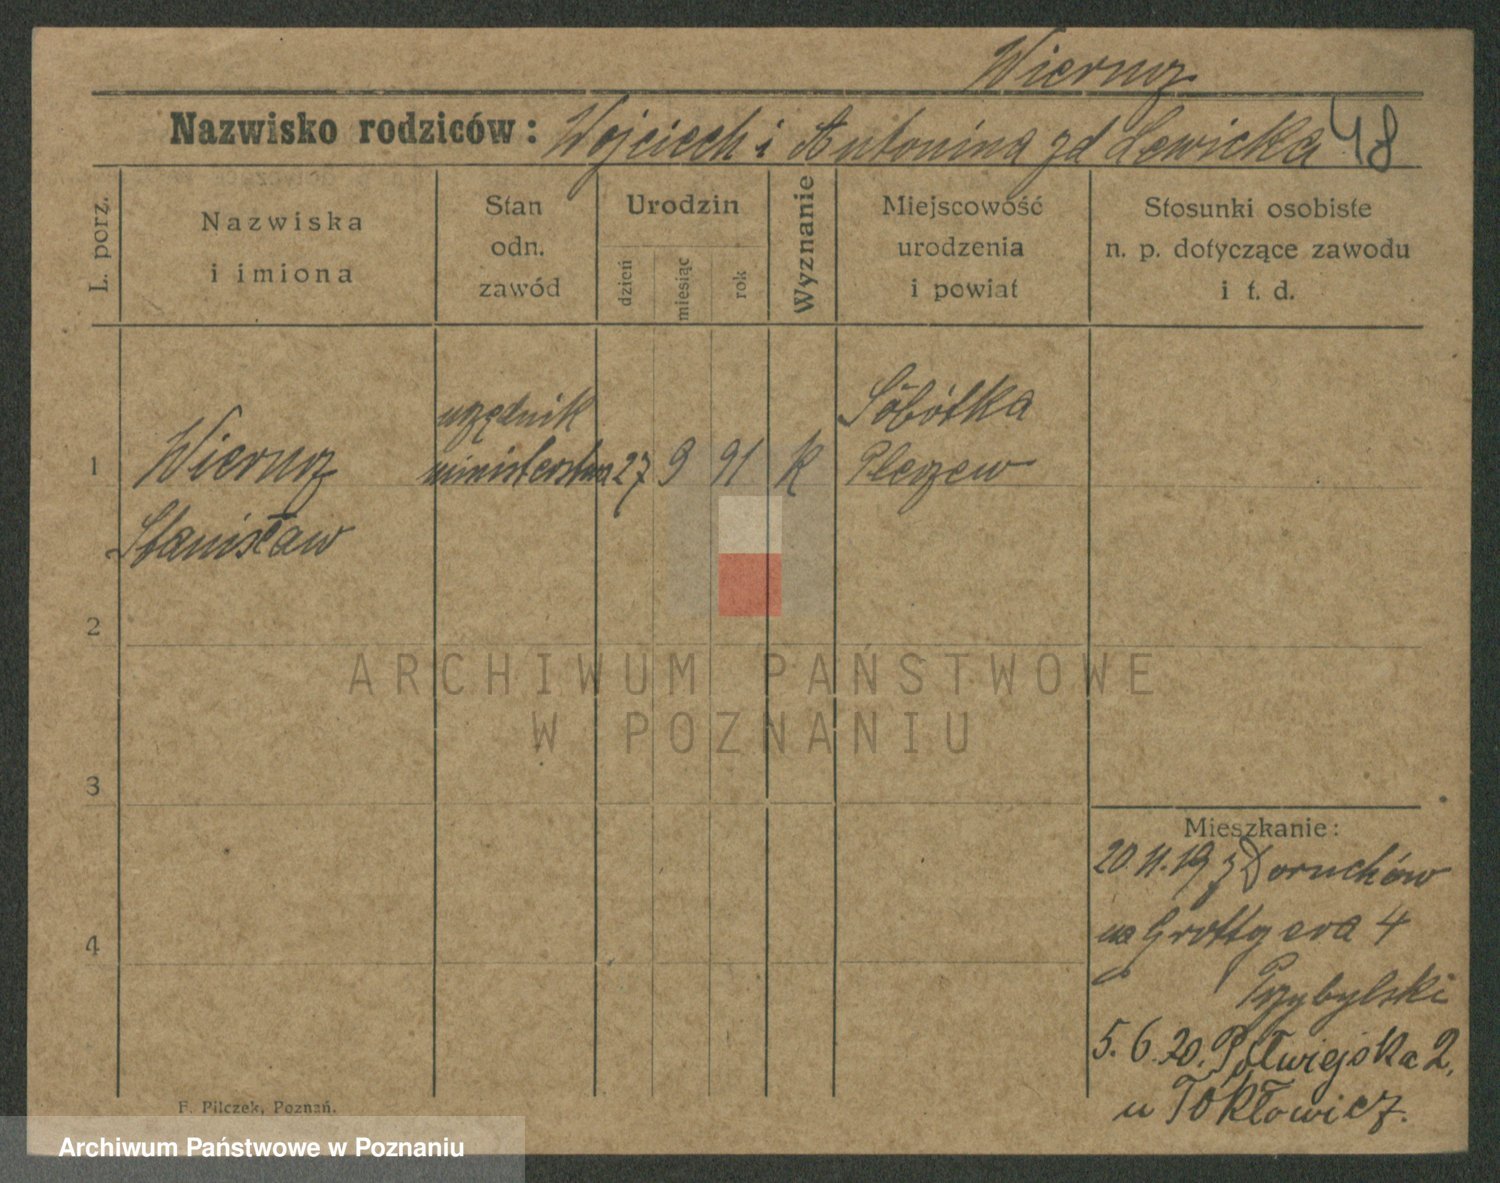 Wiernz
Nazwisko rodziców: Wojciech i Antonina zd Lewicka 48
L. porz.
Nazwiska
i imiona
Stan
odn.
zawód
Urodzin
dzień
miesiąc
rok
Wyznanie
Miejscowość
urodzenia
i powiat
Stosunki osobiste
n. p. dotyczące zawodu
i t. d.
1
Stanisław
urzędnik
ministerstwa
27 9 91 K
Sobótka
Pleszew
2
3
4
ARCHIWUM PAŃSTWOWE
W POZNANIU
Mieszkanie:
20.11.19 z Doruchów
na Grottgera 4
Przybylski
5.6.20. Półwiejska 2,
u
F. Pilczek, Poznań.
Archiwum Państwowe w Poznaniu